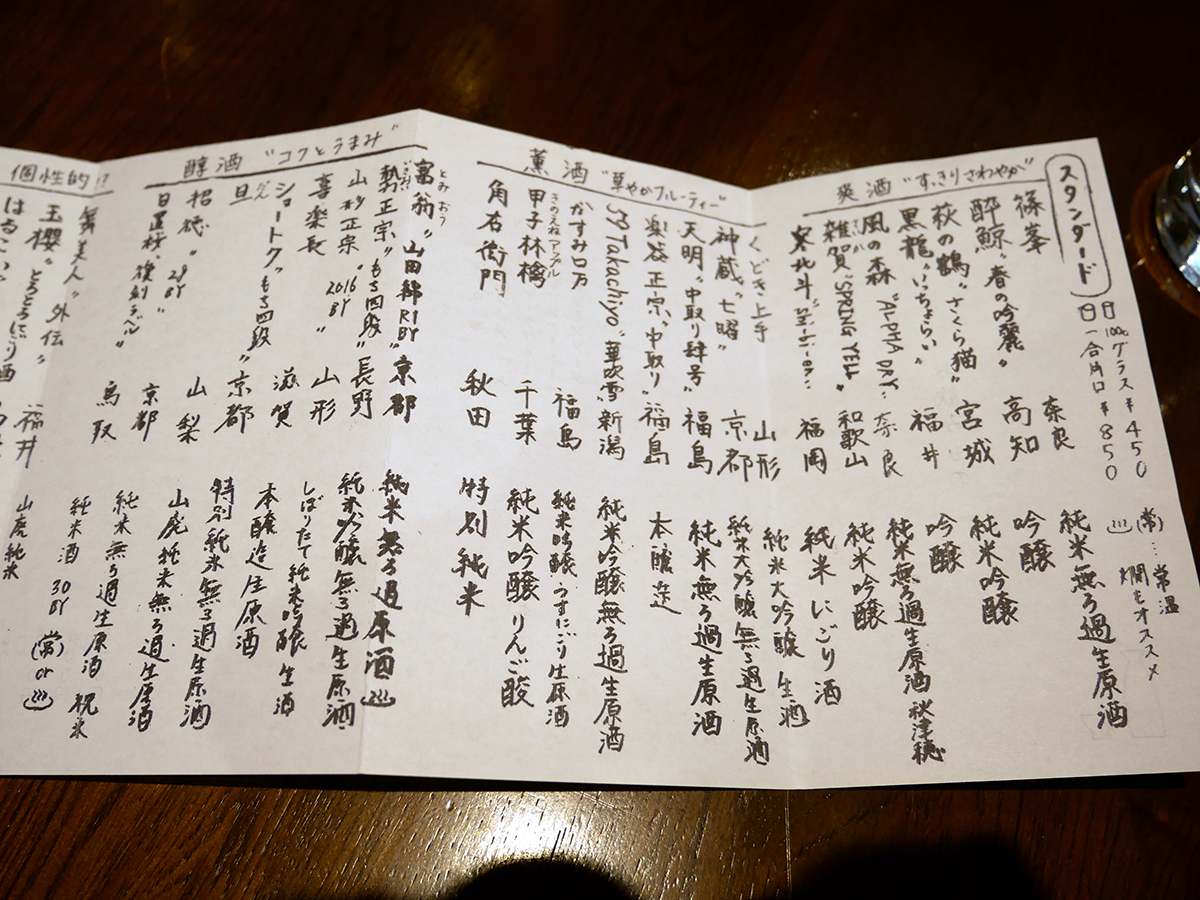 スタンダード
100cc グラス ¥450
一合片口 ¥850
(常)…常温
♨ 燗もオススメ
爽酒 "すっきりさわやか"
篠峯 奈良 純米無ろ過生原酒
酔鯨 "春の吟麗" 高知 吟醸
萩の鶴 "さくら猫" 宮城 純米吟醸
黒龍 "いっちょらい" 福井 吟醸
風の森 "ALPHA DAY" 奈良 純米無ろ過生原酒 秋津穂
雑賀 "SPRING YELL" 和歌山 純米吟醸
寒北斗 福岡 純米にごり酒
薫酒 "華やかフルーティー"
くどき上手 山形 純米大吟醸 生酒
神蔵 "七曜" 京都 純米大吟醸無ろ過生原酒
天明 "中取り肆号" 福島 純米無ろ過生原酒
楽谷正宗 "中取り" 福島 本醸造
59 Takachiyo "華吹雪" 新潟 純米吟醸無ろ過生原酒
かすみロ万 福島 純米吟醸 うすにごり生原酒
甲子林檎 きのえねアップル 千葉 純米吟醸 りんご酸
角右衛門 秋田 特別純米
醇酒 "コクとうまみ"
富翁 とみおう "山田錦 R1BY" 京都 純米無ろ過原酒 ♨
勢正宗 "もち四段" 長野 純米吟醸無ろ過生原酒
山形正宗 "2016BY" 山形 しぼりたて純米吟醸 生酒
喜楽長 滋賀 本醸造生原酒
ショートク "もち四段" 京都 特別純米無ろ過生原酒
旦 だん 山梨 山廃純米無ろ過生原酒
招徳 "29BY" 京都 純米無ろ過生原酒 祝米
日置桜 "復刻ラベル" 鳥取 純米酒 30BY (常)or♨
個性的!?
美人 "外伝" 福井 山廃純米
玉櫻 "とろとろにごり酒"